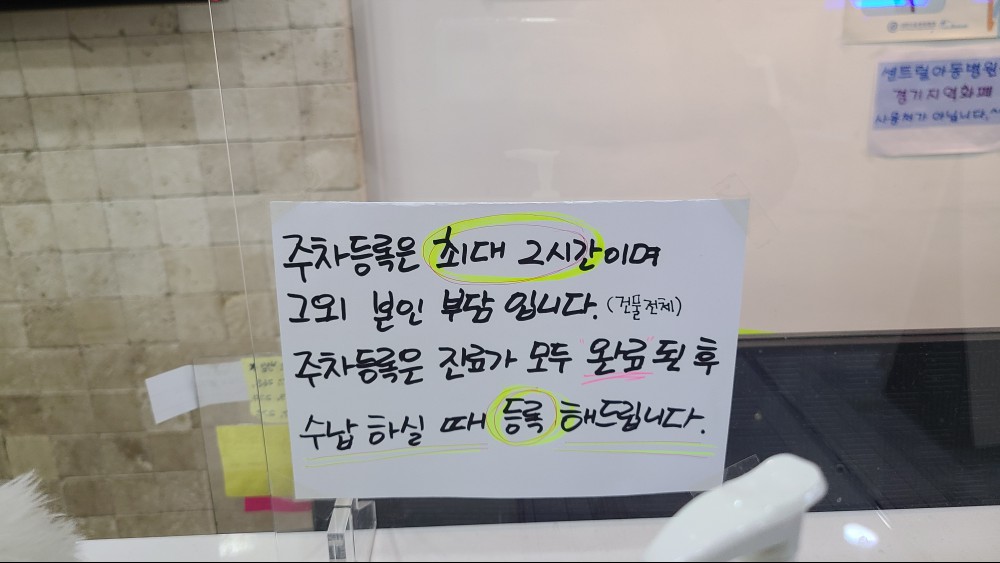 주차등록은 최대 2시간이며
그외 본인 부담 입니다. (건물전체)
주차등록은 진료가 모두 "완료"된 후
수납 하실 때 등록 해드립니다.
센트럴아동병원
경기지역화폐
사용처가 아닙니다.